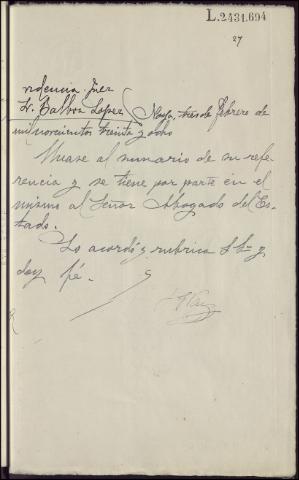 L.2431.694
27
videncia Juez
Sr. Balboa Lopez Noya, tres de febrero de
mil novecientos treinta y ocho
Unase al sumario de su refe
rencia y se tiene por parte en el
mismo al Señor Abogado del Es-
tado.
Lo acordó y rubrica S Sª y
doy fé.